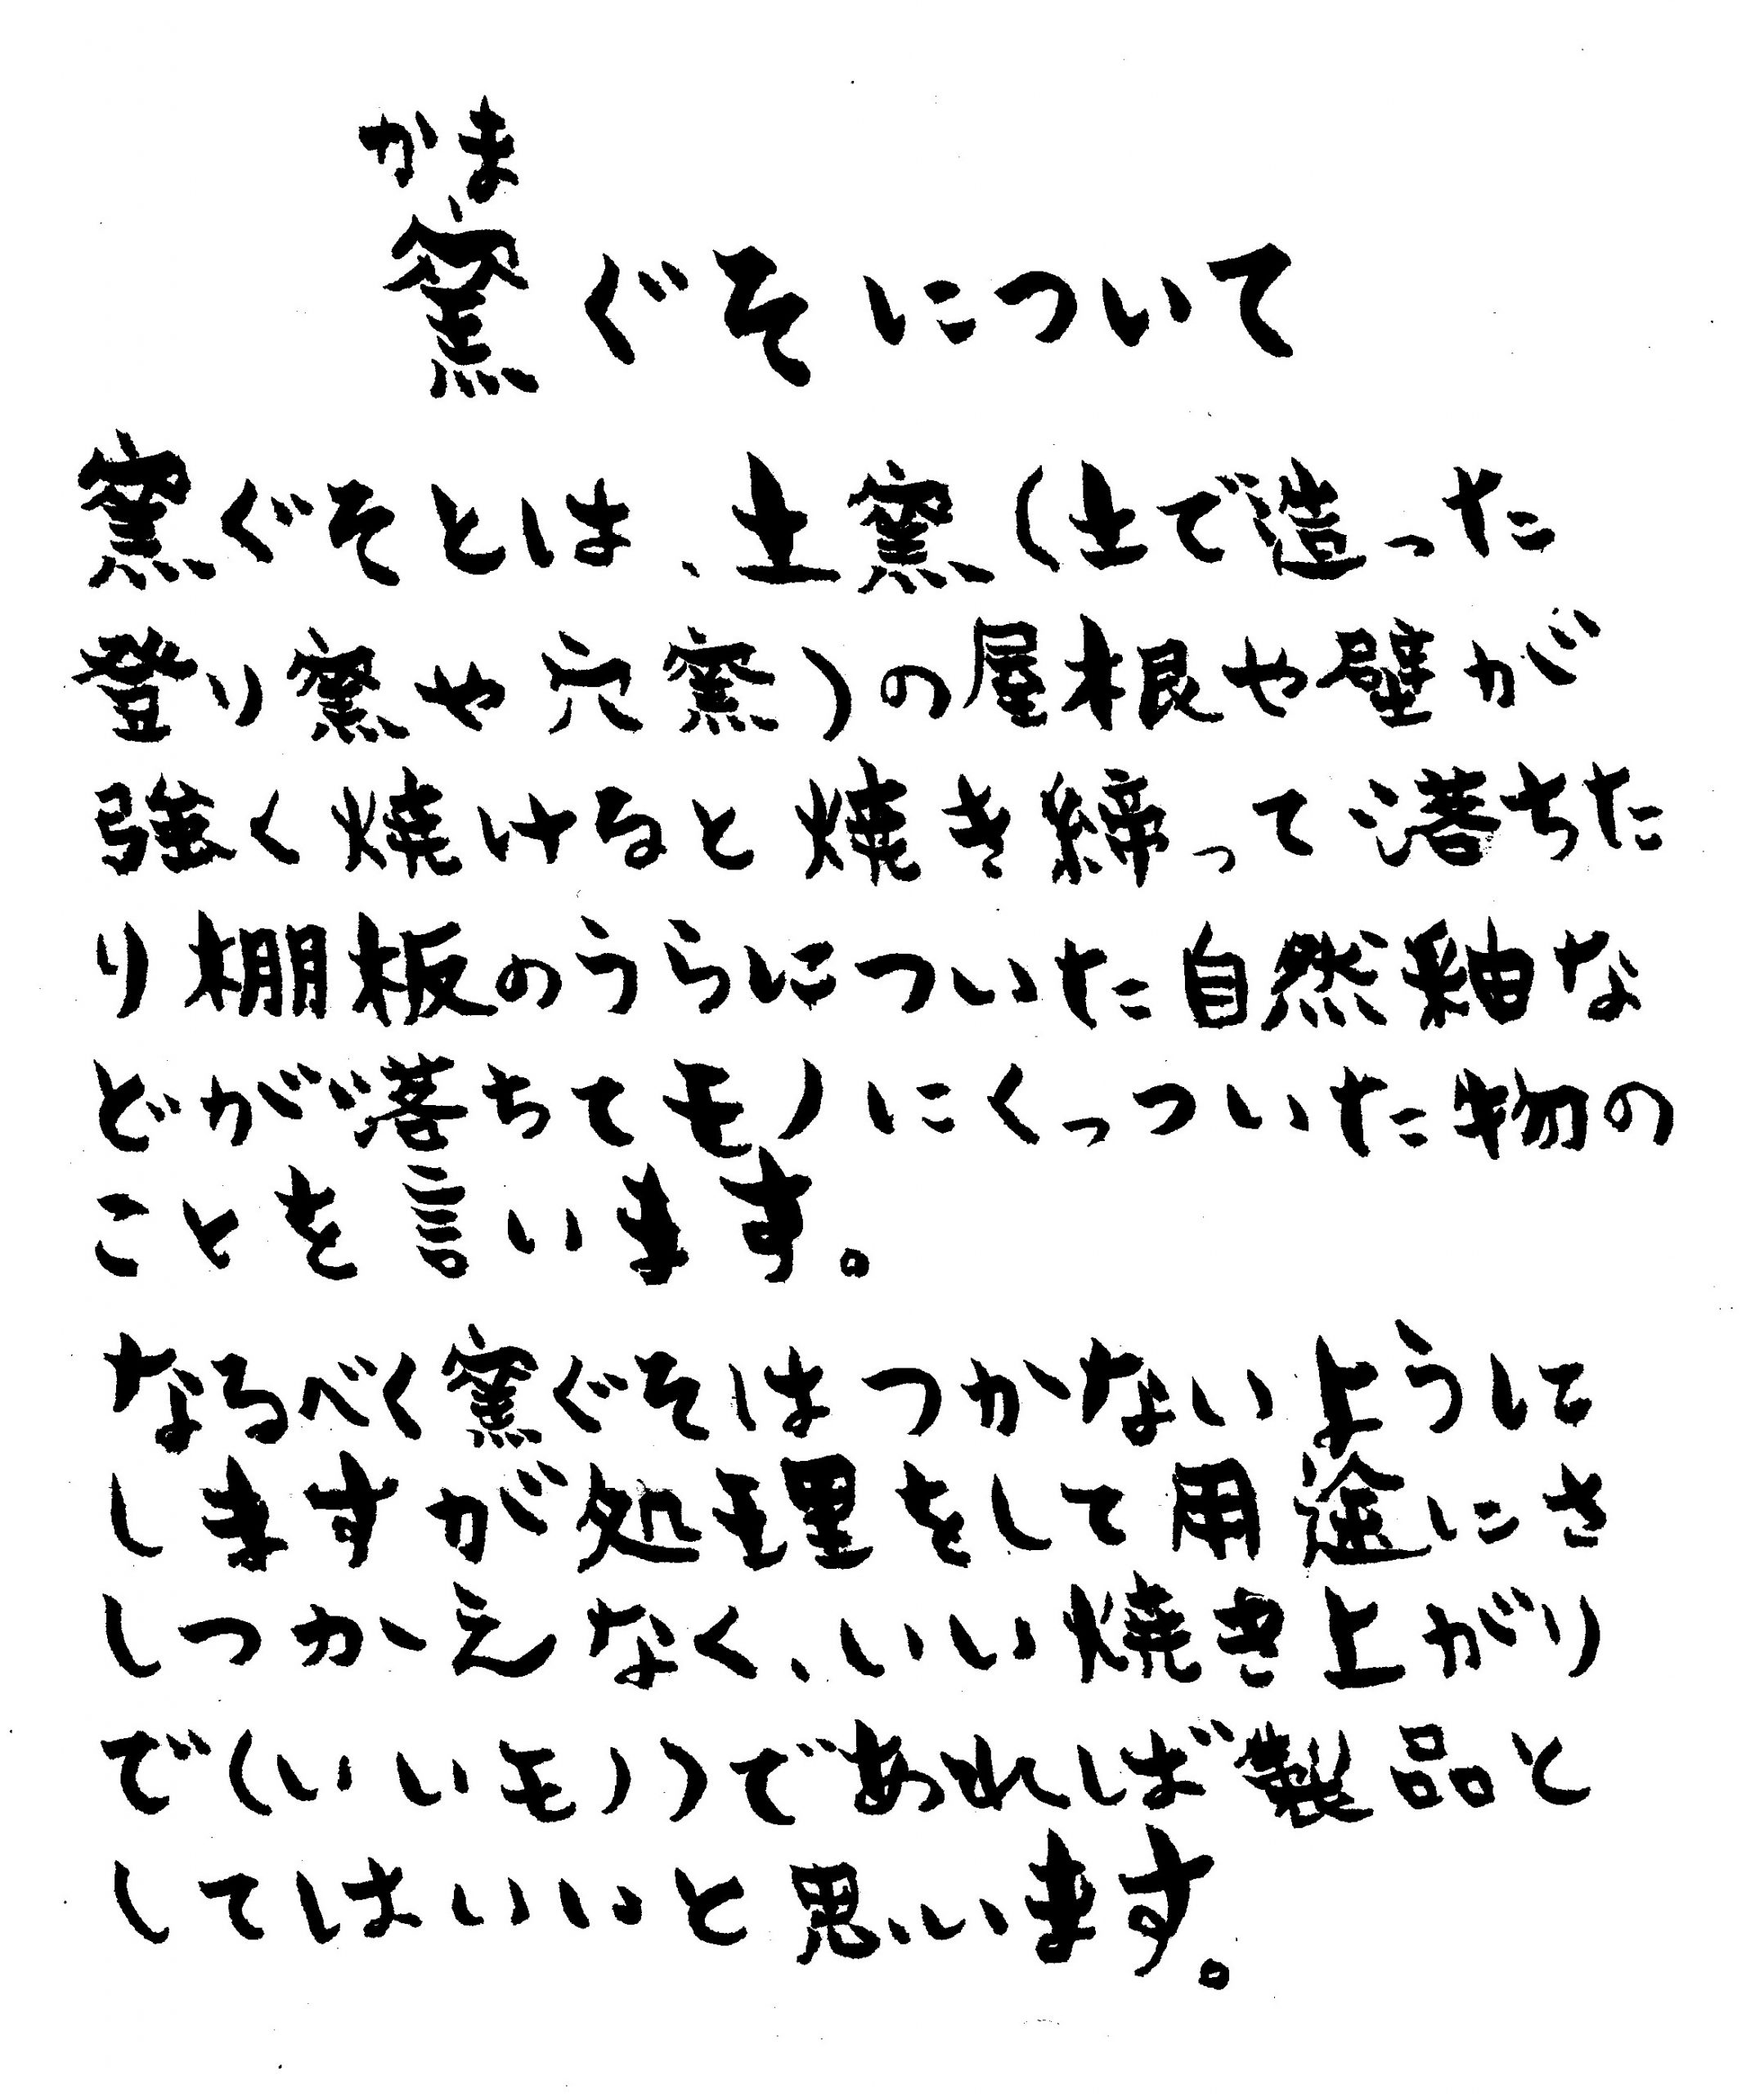 かま
窯ぐそについて
窯ぐそとは、土窯(土で造った
登り窯や穴窯)の屋根や壁が
強く焼けると焼き締って落ちた
り棚板のうらについた自然釉な
どが落ちてモノにくっついた物の
ことを言います。
なるべく窯ぐそはつかないように
しますが処理をして用途にさ
しつかえなく、いい焼き上がり
で(いいモノ)であれば製品と
してはいいと思います。